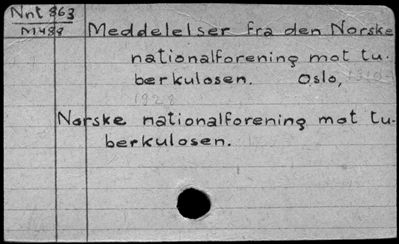 Nnt 863
M488
Meddelelser fra den Norske
nationalforening mot tu-
berkulosen. Oslo, 1910-
1928
Norske nationalforening mot tu-
berkulosen.